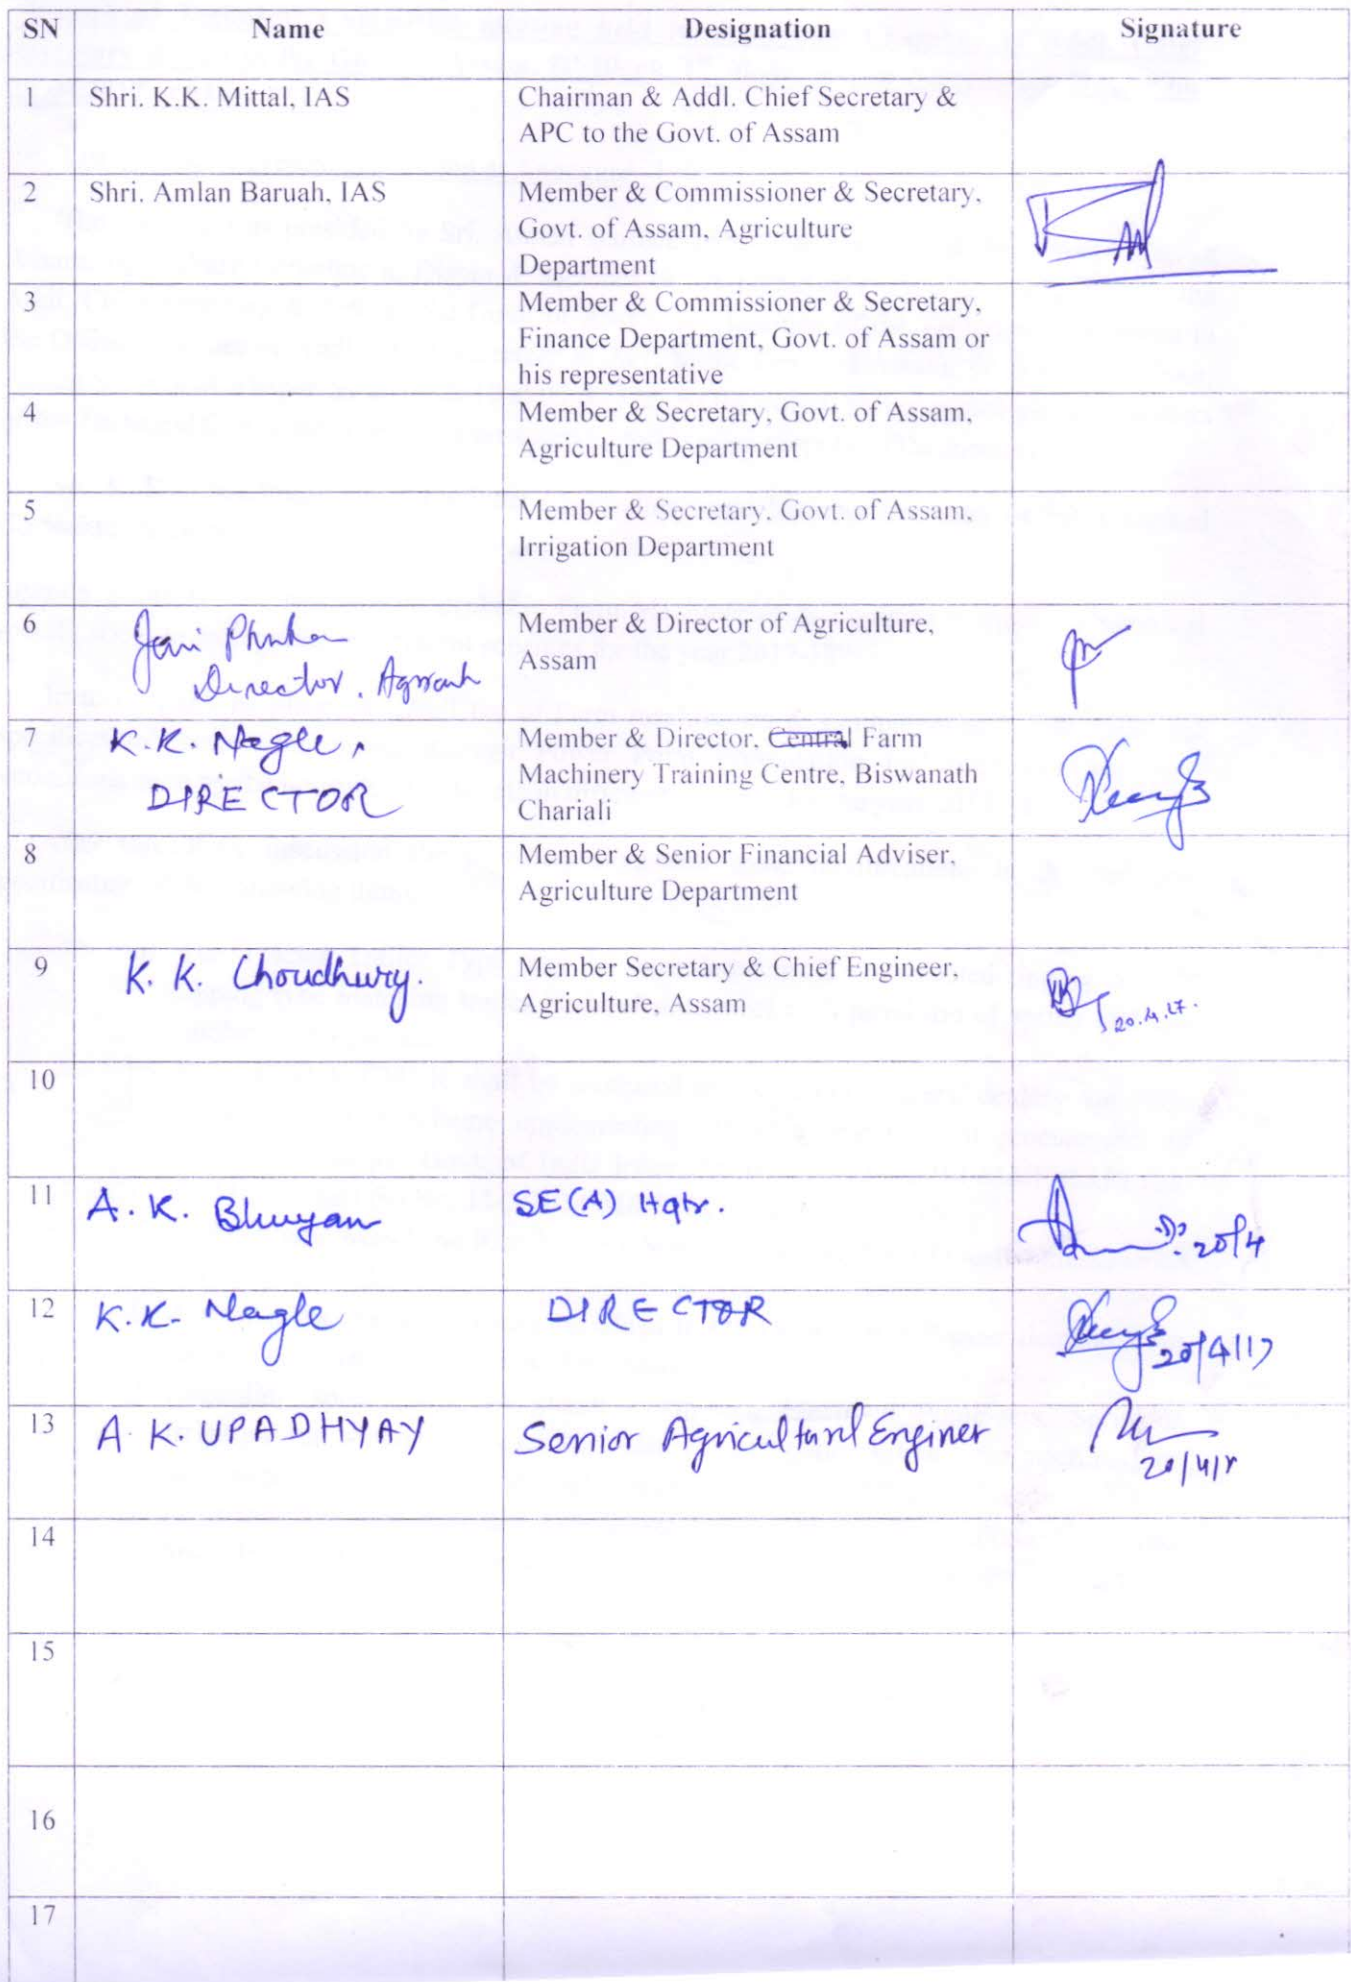 SN Name Designation Signature
1 Shri. K.K. Mittal, IAS Chairman & Addl. Chief Secretary &
APC to the Govt. of Assam
2 Shri. Amlan Baruah, IAS Member & Commissioner & Secretary,
Govt. of Assam, Agriculture
Department
3 Member & Commissioner & Secretary,
Finance Department, Govt. of Assam or
his representative
4 Member & Secretary, Govt. of Assam,
Agriculture Department
5 Member & Secretary, Govt. of Assam,
Irrigation Department
6 Member & Director of Agriculture,
Assam
Director,
7 K.K. Nagle, Member & Director, Central Farm
DIRECTOR Machinery Training Centre, Biswanath
Chariali
8 Member & Senior Financial Adviser,
Agriculture Department
9 K. K. Choudhury. Member Secretary & Chief Engineer,
Agriculture, Assam
20.4.17.
10
11 A. K. Bhuyan SE(A) Hqtr.
20/4
12 K.K. Nagle DIRECTOR
20/4/17
13 A. K. UPADHYAY Senior Agricultural Enginer
14
15
16
17